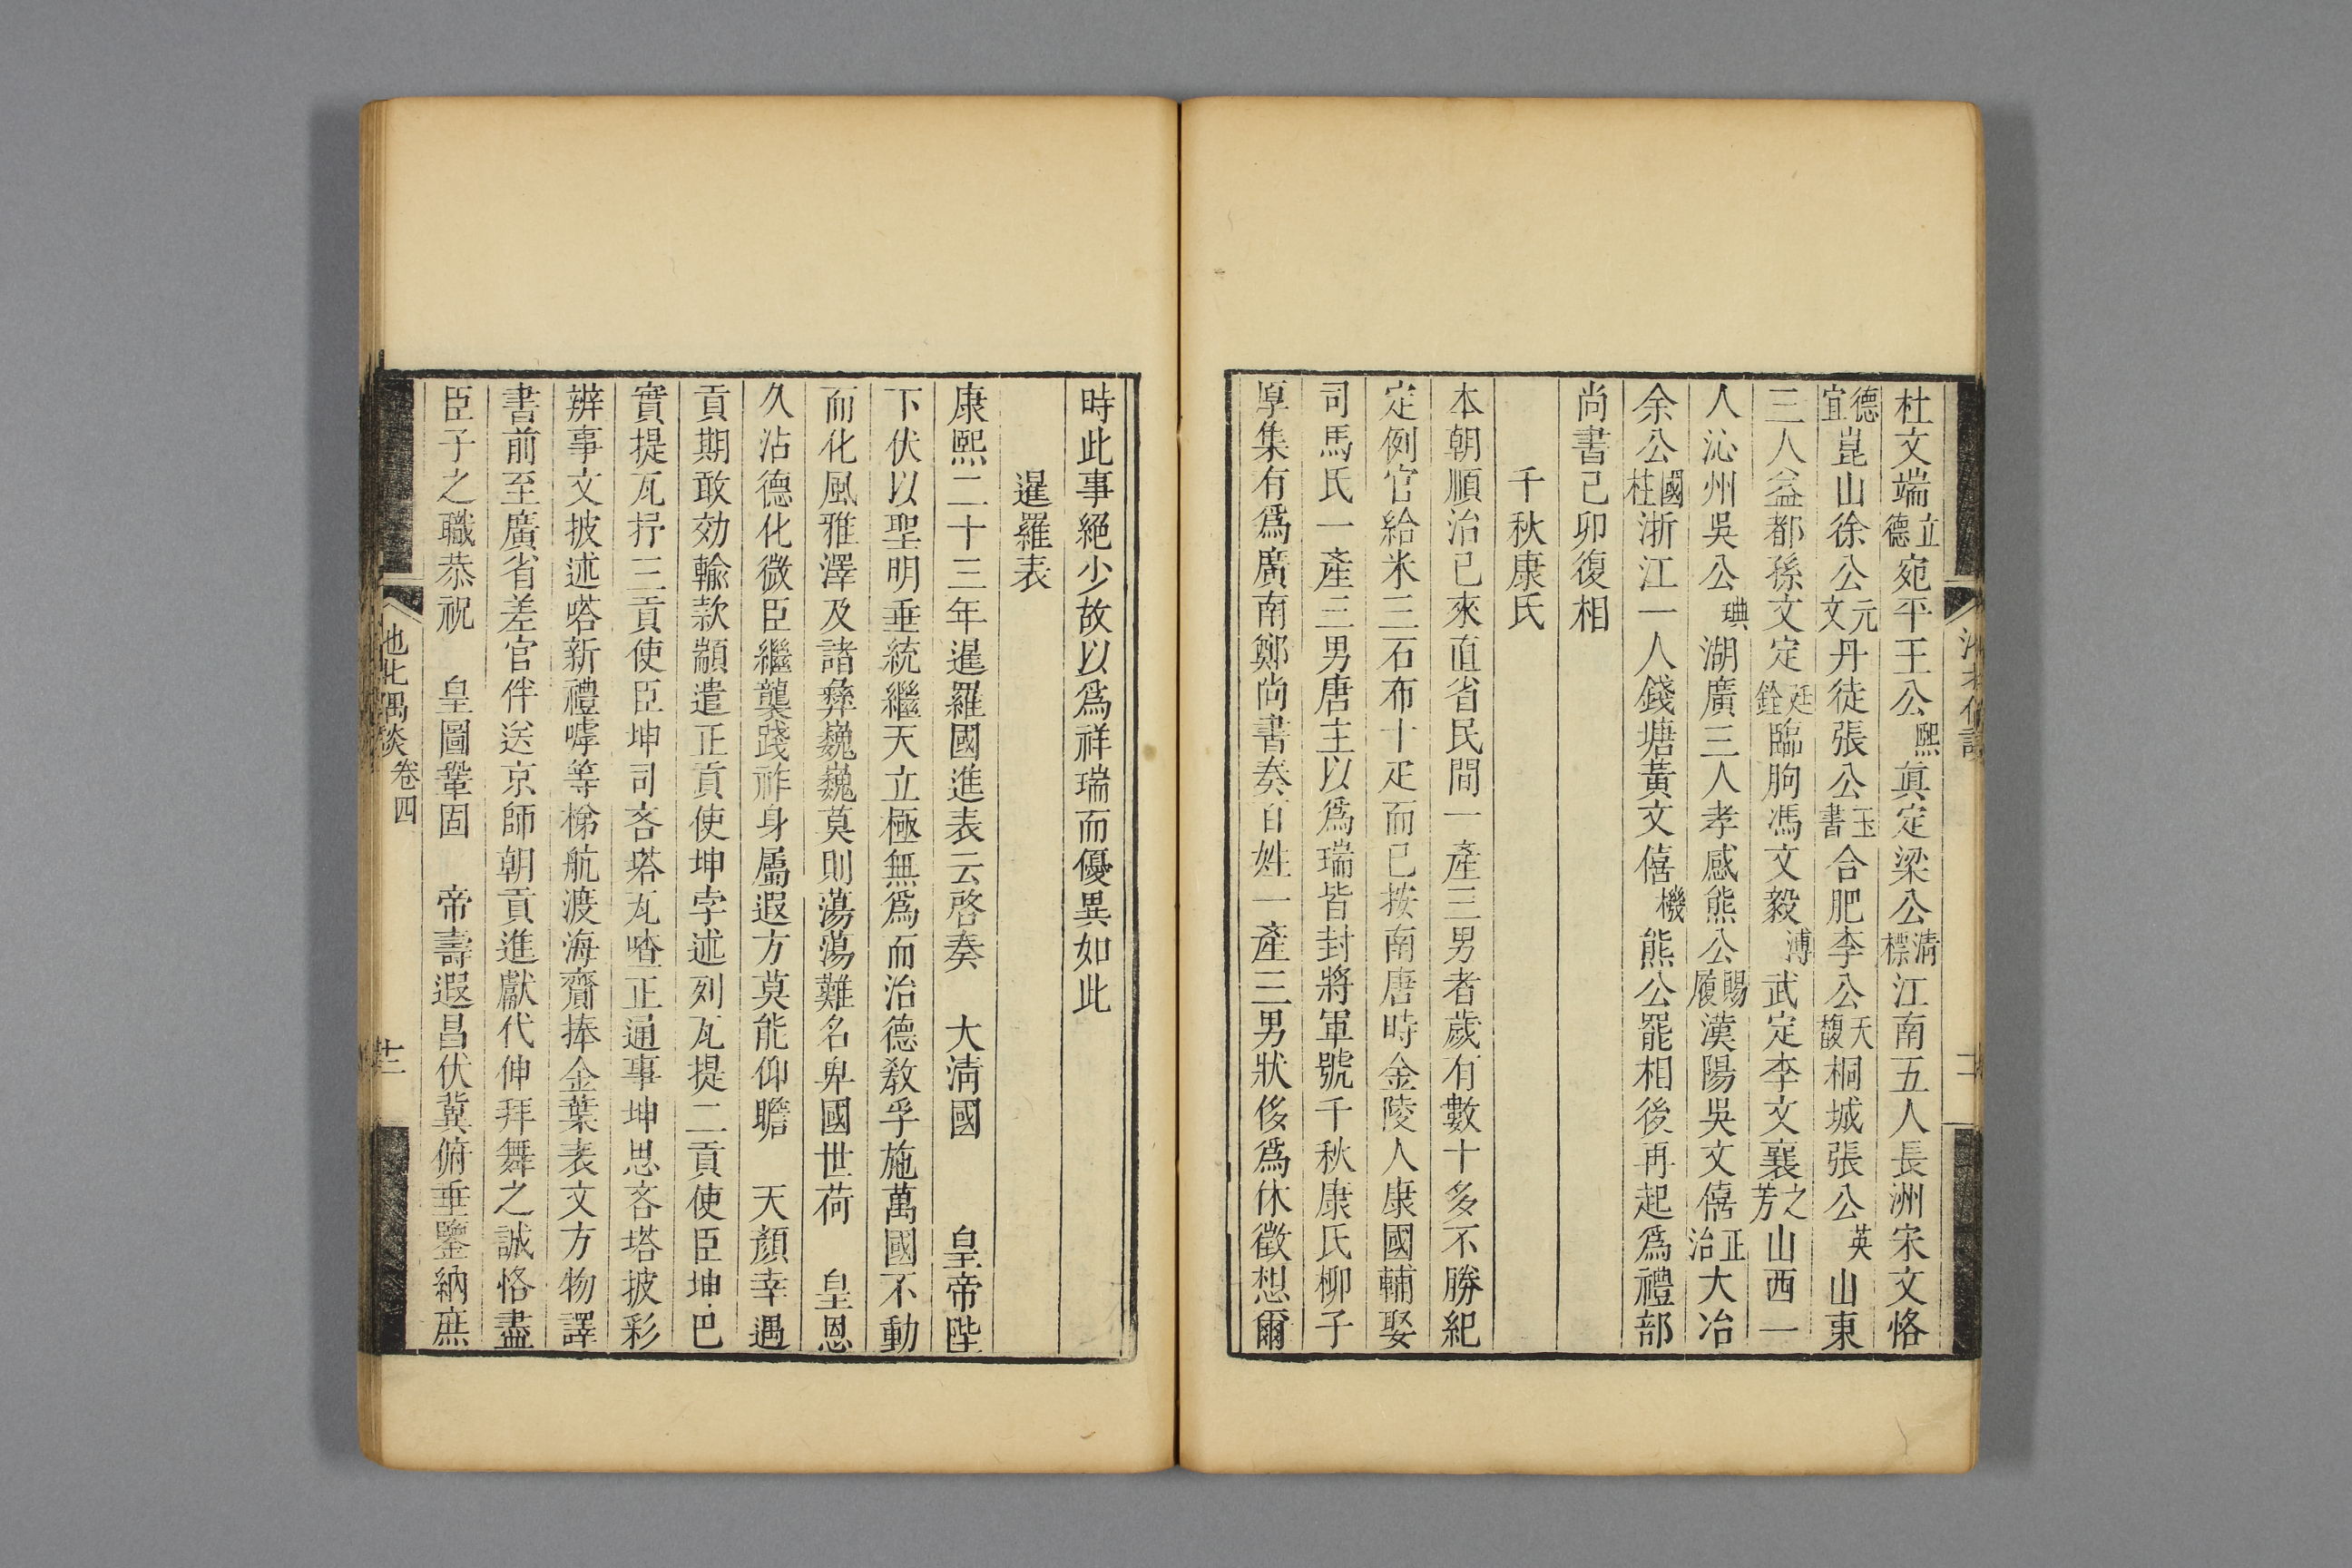 杜文端立德宛平王公熙眞定梁公清標江南五人長洲宋文恪
德宜崑山徐公元文丹徒張公玉書合肥李公天馥桐城張公英山東
三人益都孫文定廷銓臨朐馮文毅溥武定李文襄之芳山西一
人沁州吳公琠湖廣三人孝感熊公賜履漢陽吳文僖正治大冶
余公國柱浙江一人錢塘黃文僖機熊公罷相後再起爲禮部
尚書己卯復相
千秋康氏
本朝順治已來直省民間一產三男者歲有數十多不勝紀
定例官給米三石布十疋而已按南唐時金陵人康國輔娶
司馬氏一產三男唐主以爲瑞皆封將軍號千秋康氏柳子
厚集有爲廣南鄭尚書奏百姓一產三男狀侈爲休徵想爾
時此事絕少故以爲祥瑞而優異如此
暹羅表
康熙二十三年暹羅國進表云啓奏 大淸國 皇帝陛
下伏以聖明垂統繼天立極無爲而治德敎孚施萬國不動
而化風雅澤及諸彝巍巍莫則蕩蕩難名卑國世荷 皇恩
久沾德化微臣繼襲踐祚身屬遐方莫能仰瞻 天顏幸遇
貢期敢効輸款顓遣正貢使坤孛述列瓦提二貢使臣坤巴
實提瓦抒三貢使臣坤司吝塔瓦喳正通事坤思吝塔披彩
辦事文披述嗒新禮嘑等梯航渡海齎捧金葉表文方物譯
書前至廣省差官伴送京師朝貢進獻代伸拜舞之誠恪盡
臣子之職恭祝 皇圖鞏固 帝壽遐昌伏冀俯垂鑒納庶
池北偶談 卷四